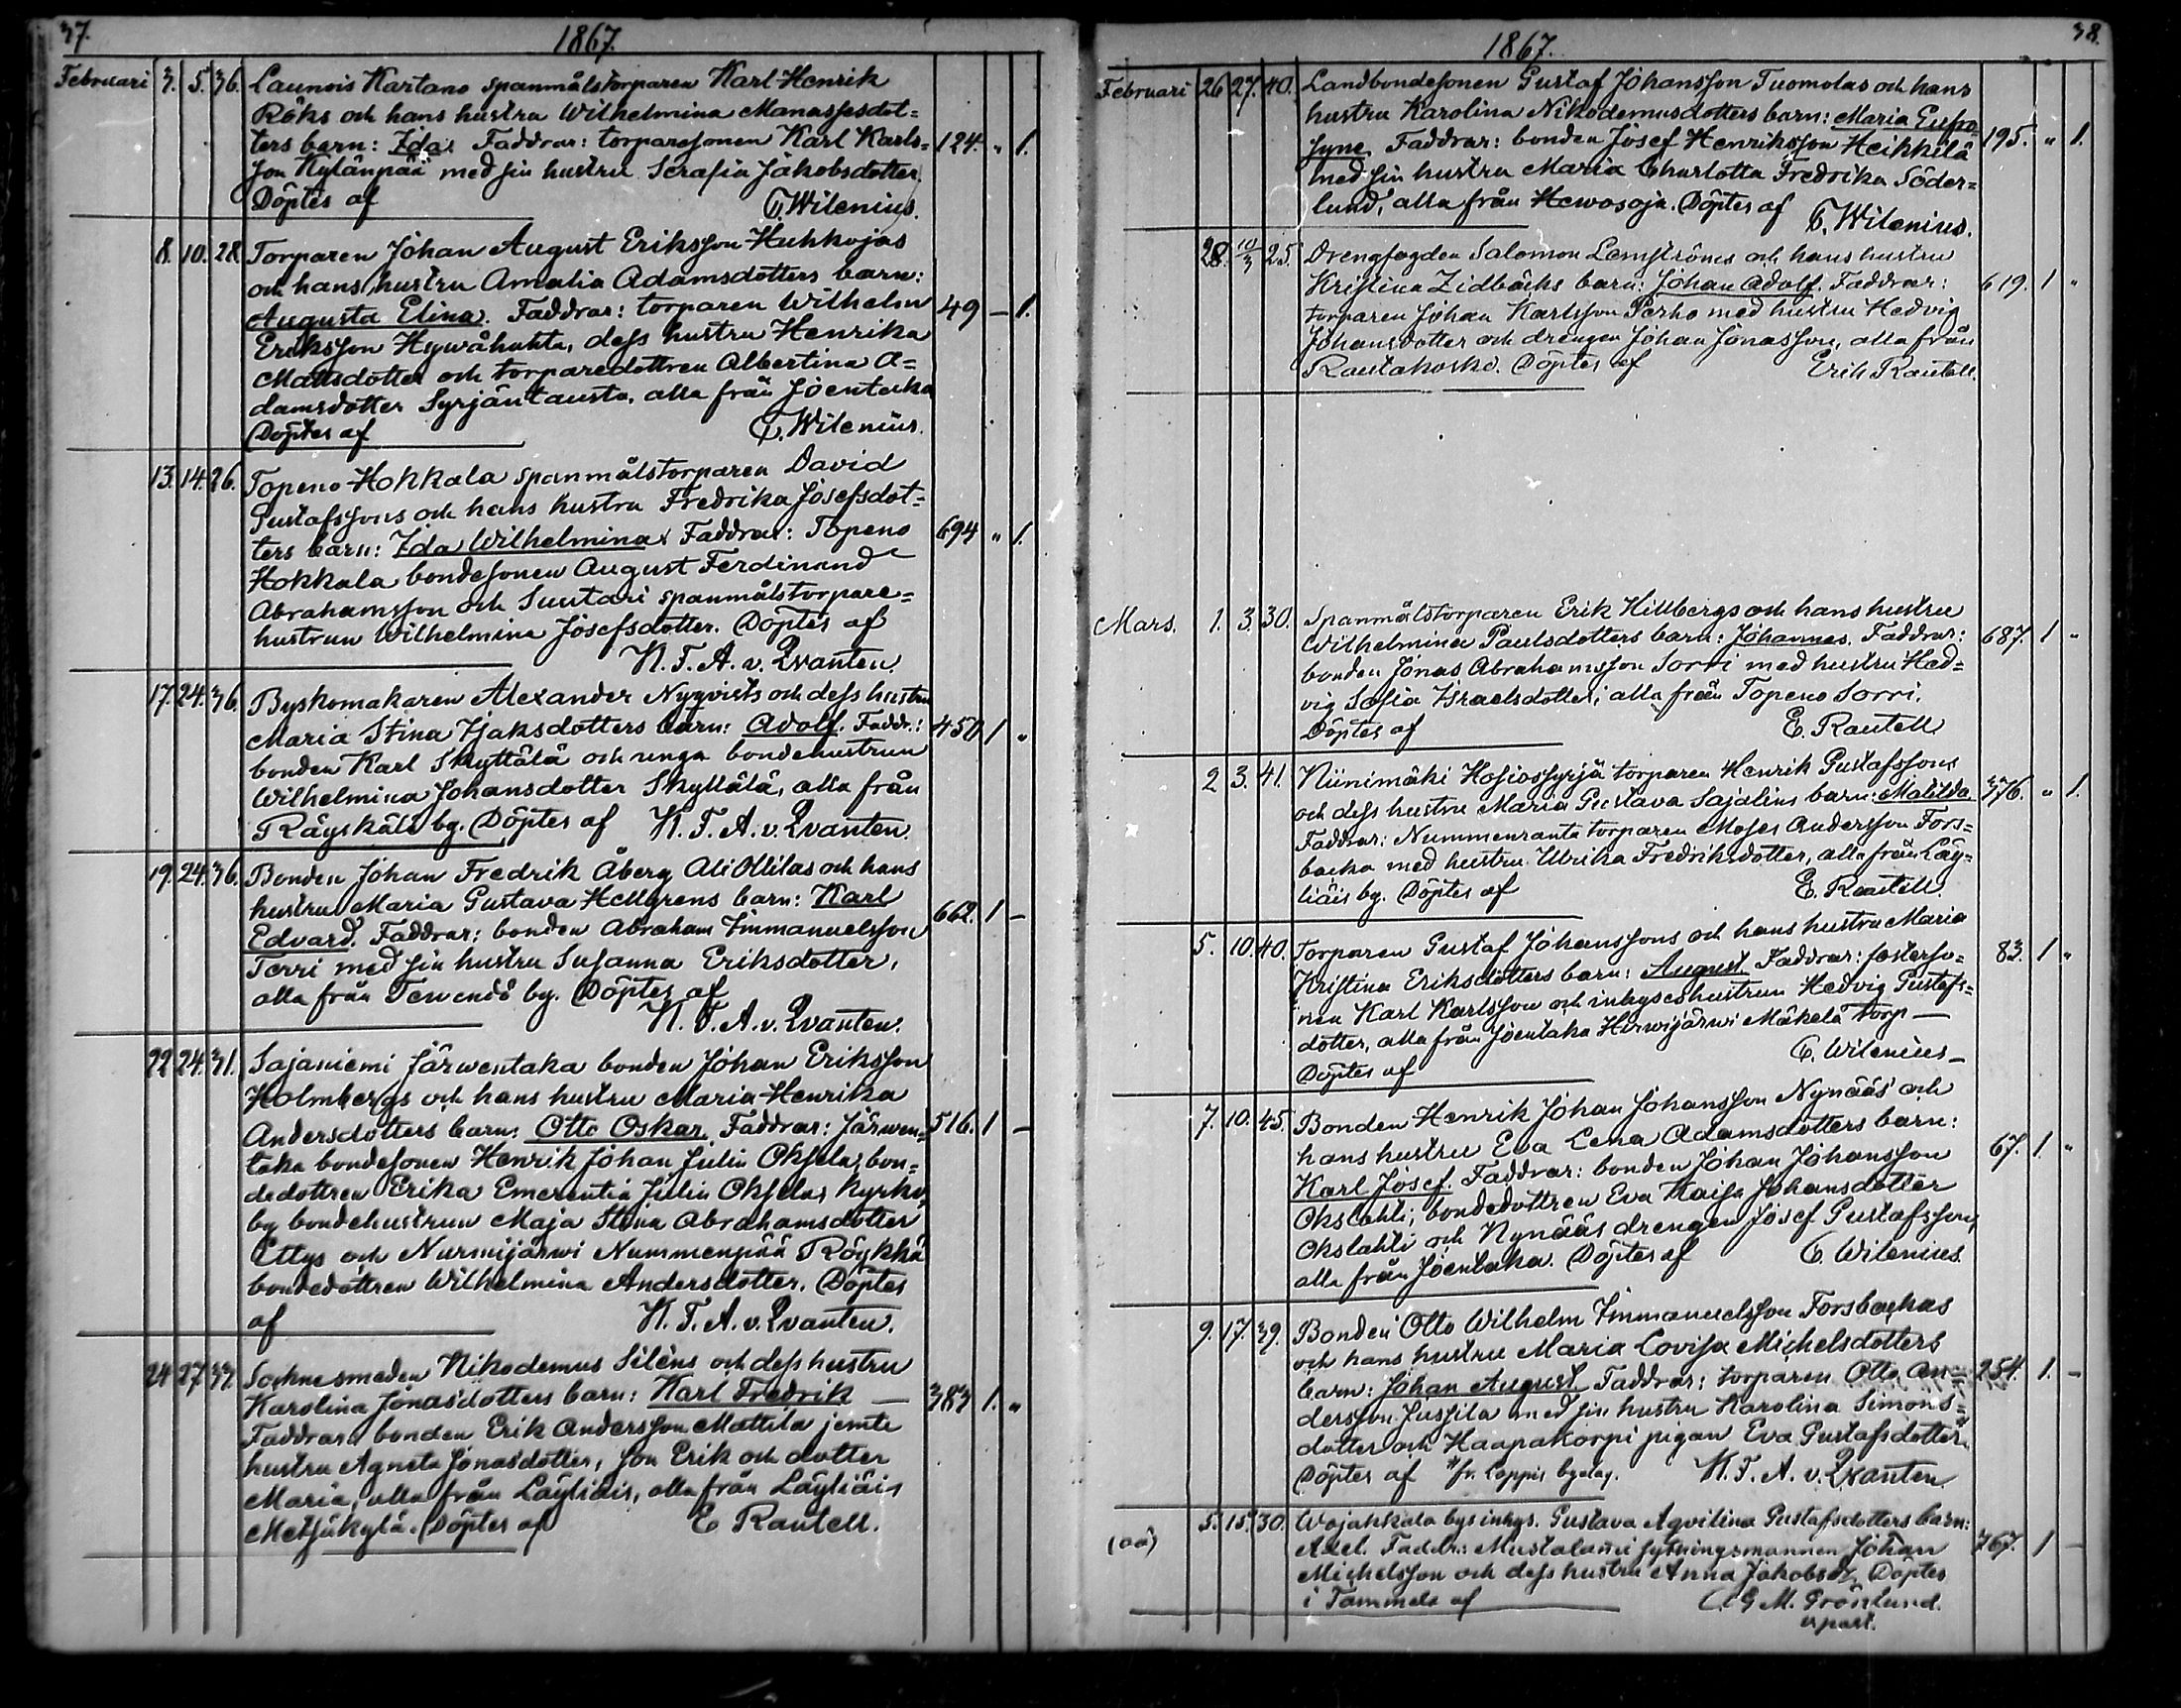 37.
1867.
Februari 3. 5. 36. Launois Kartano spanmålstorparen Karl Henrik
Röks och hans hustru Wilhelmina Manassesdot=
ters barn: Ida. Faddrar: torparesonen Karl Karls= 124. " 1.
son Kylänpää med sin hustru Serafia Jakobsdotter.
Döptes af C. Wilenius.
8. 10. 28. Torparen Johan August Eriksson Huhkojas
och hans hustru Amalia Adamsdotters barn:
Augusta Elina. Faddrar: torparen Wilhelm 49 — 1.
Eriksson Hywähuhta, dess hustru Henrika
Mattsdotter och torparedottren Albertina A=
damsdotter Syrjäntausta, alla från Joentaka
Döptes af C. Wilenius.
13. 14. 26. Topeno Hokkala spanmålstorparen David
Gustafssons och hans hustru Fredrika Josefsdot=
ters barn: Ida Wilhelmina. Faddrar: Topeno 694 " 1.
Hokkala bondesonen August Ferdinand
Abrahamsson och Suutari spanmålstorpare=
hustrun Wilhelmina Josefsdotter. Döptes af
K. F. A. v. Qvanten.
17. 24. 36. Byskomakaren Alexander Nyqvists och dess hustru
Maria Stina Isaksdotters barn: Adolf. Faddr.: 450 1 "
bonden Karl Skyttälä och unga bondehustrun
Wilhelmina Johansdotter Skyttälä, alla från
Räyskälä by. Döptes af K. F. A. v. Qvanten.
19. 24. 36. Bonden Johan Fredrik Åberg Ali Ollilas och hans
hustru Maria Gustava Hellgrens barn: Karl 662. 1 —
Edvard. Faddrar: bonden Abraham Immanuelsson
Terri med sin hustru Susanna Eriksdotter,
alla från Tewendö by. Döptes af
K. F. A. v. Qvanten.
22 24. 31. Sajaniemi Järwentaka bonden Johan Eriksson
Holmbergs och hans hustru Maria Henrika
Andersdotters barn: Otto Oskar. Faddrar: Järwen= 516. 1 —
taka bondesonen Henrik Johan Julin Oksela, bon=
dedottren Erika Emerentia Julin Oksela, Kyrko
by bondehustrun Maja Stina Abrahamsdotter
Ettys och Nurmijärwi Nummenpää Röykkä
bondedottren Wilhelmina Andersdotter. Döptes
af K. F. A. v. Qvanten.
24 27 37. Socknesmeden Nikodemus Siléns och dess hustru
Karolina Jonasdotters barn: Karl Fredrik — 383 1. "
Faddrar: bonden Erik Andersson Mattila jemte
hustru Agneta Jonasdotter, son Erik och dotter
Maria, alla från Läyliäis, alla från Läyliäis
Metsäkylä. Döptes af E Rautell.
38.
1867.
Februari 26 27. 40. Landbondesonen Gustaf Johansson Tuomolas och hans
hustru Karolina Nikodemusdotters barn: Maria Eufro=
syne. Faddrar: bonden Josef Henriksson Heikkilä 195. " 1.
med sin hustru Maria Charlotta Fredrika Söder=
lund, alla från Hewosoja. Döptes af C. Wilenius.
28. 10/3 25. Drengfogden Salomon Lemströms och hans hustru
Kristina Lidbäcks barn: Johan Adolf. Faddrar: 619. 1 "
torparen Johan Karlsson Perho med hustru Hedvig
Johansdotter och drengen Johan Jonasson, alla från
Rautakoski. Döptes af Erik Rautell.
Mars. 1. 3. 30. Spanmålstorparen Erik Hillbergs och hans hustru
Wilhelmina Paulsdotters barn: Johannes. Faddrar: 687. 1 "
bonden Jonas Abrahamsson Sorri med hustru Hed=
vig Sofia Israelsdotter, alla från Topeno Sorri.
Döptes af E. Rautell
2 3. 41. Niinimäki Hosiossyrjä torparen Henrik Gustafssons
och dess hustru Maria Gustava Sajalins barn: Matilda. 376. " 1.
Faddrar: Nummenranta torparen Moses Andersson Fors=
backa med hustru Ulrika Fredriksdotter, alla från Läy=
liäis by. Döptes af E. Rautell.
5. 10. 40. Torparen Gustaf Johanssons och hans hustru Maria
Kristina Eriksdotters barn: August. Faddrar: fosterso= 83. 1 "
nen Karl Karlsson och inhyseshustrun Hedvig Gustafs=
dotter, alla från Joentaka Hirwijärwi Mäkelä torp —
Döptes af C. Wilenius —
7. 10. 45. Bonden Henrik Johan Johansson Nynääs och
hans hustru Eva Lena Adamsdotters barn:
Karl Josef. Faddrar: bonden Johan Johansson 67. 1. "
Okslahti, bondedottren Eva Kaisa Johansdotter
Okslahti och Nynääs drengen Josef Gustafsson,
alla från Joentaka. Döptes af C. Wilenius.
9. 17. 39. Bonden Otto Wilhelm Immanuelsson Forsbackas
och hans hustru Maria Lovisa Michelsdotters
barn: Johan August. Faddrar: torparen Otto An= 254. 1. —
dersson Jussila med sin hustru Karolina Simons=
dotter och Haapakorpi pigan Eva Gustafsdotter*
Döptes af *fr. Loppis byalag. K. F. A. v. Qvanten
(oä) 5. 15. 30. Wojakkala bys inhys. Gustava Aqvilina Gustafsdotters barn:
Axel. Faddr: Mustalammi sytningsmannen Johan 767. 1 —
Michelsson och dess hustru Anna Jakobsd. Döptes
i Tammela af C. G. M. Grönlund.
v. past.